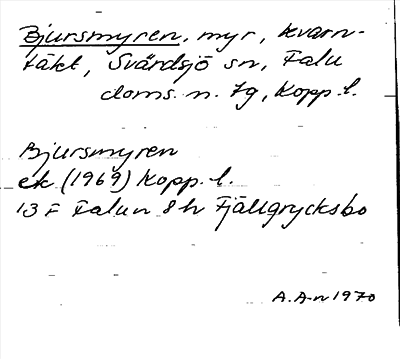 Bjursmyren, myr, kvarn-
täkt, Svärdsjö sn, Falu
doms. n. tg, Kopp. l.
Bjursmyren
ek (1969) Kopp. l.
13 F Falun 8 h Fjällgrycksbo
A.A-n 1970